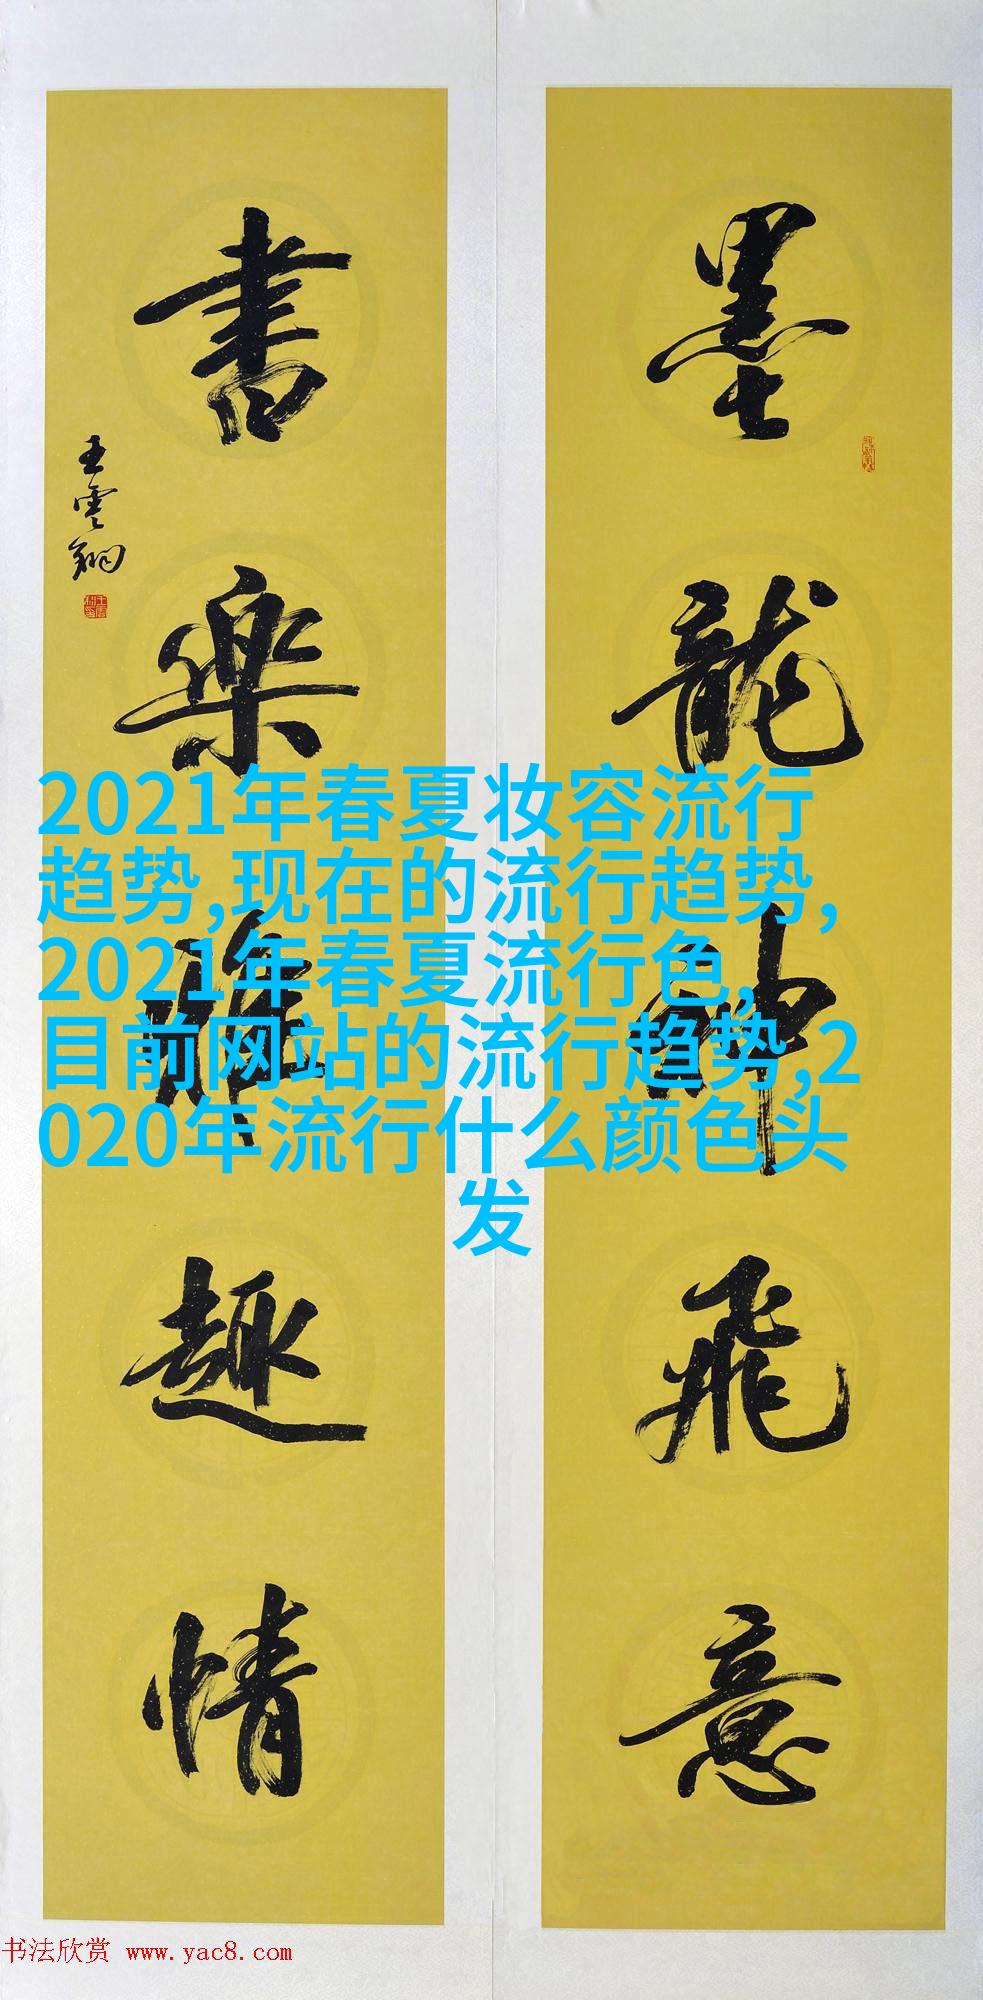 墨龍神飛意
書樂雅趣情
王雲翔
2021年春夏妆容流行
趋势,现在的流行趋势,
2021年春夏流行色,
目前网站的流行趋势,2
020年流行什么颜色头
发
书法欣赏 www.yac8.com